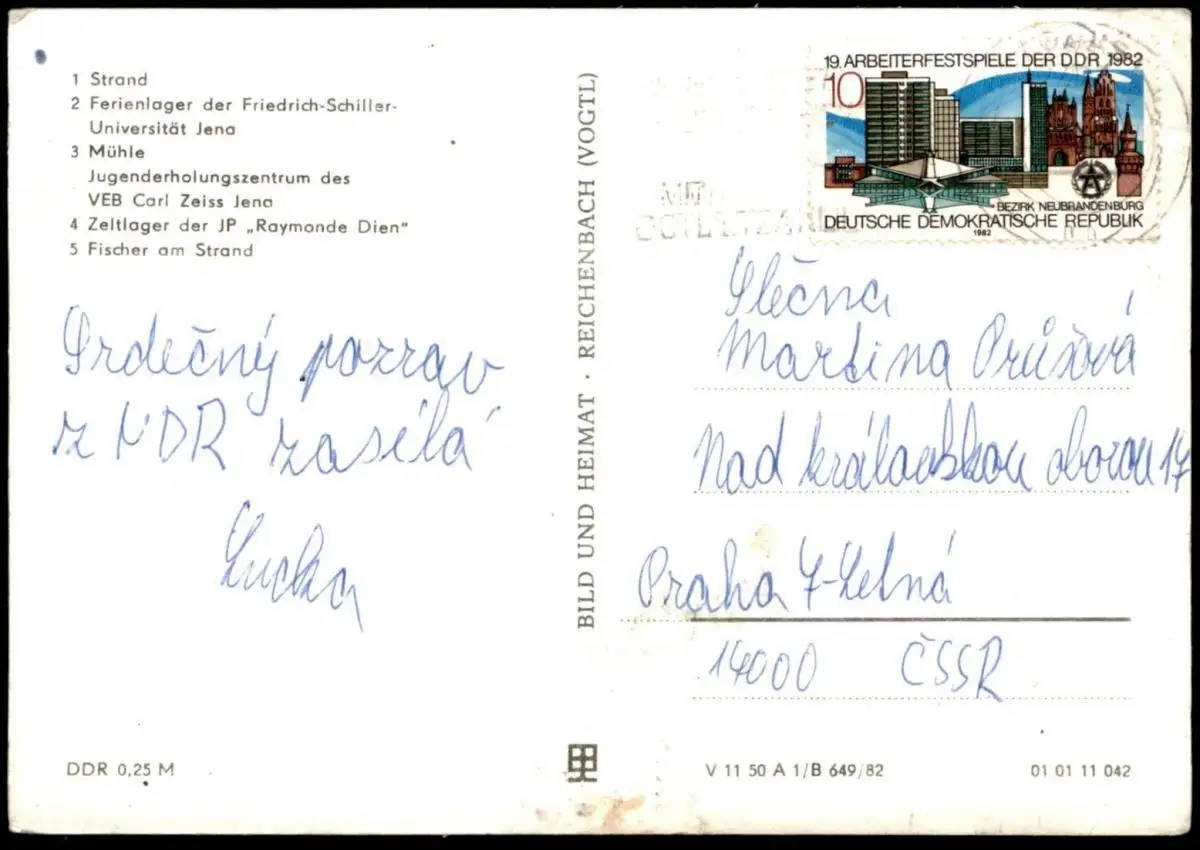 1 Strand
2 Ferienlager der Friedrich-Schiller-
Universität Jena
3 Mühle
Jugenderholungszentrum des
VEB Carl Zeiss Jena
4 Zeltlager der JP „Raymonde Dien"
5 Fischer am Strand
Srdečný pozrav
z NDR zasílá
Lucka
DDR 0,25 M
BILD UND HEIMAT · REICHENBACH (VOGTL)
19. ARBEITERFESTSPIELE DER DDR 1982
10
BEZIRK NEUBRANDENBURG
DEUTSCHE DEMOKRATISCHE REPUBLIK
1982
MIT
Slečna
Martina Průšová
Nad královskou oborou 17
Praha 7-Letná
14000 ČSSR
V 11 50 A 1/B 649/82
01 01 11 042